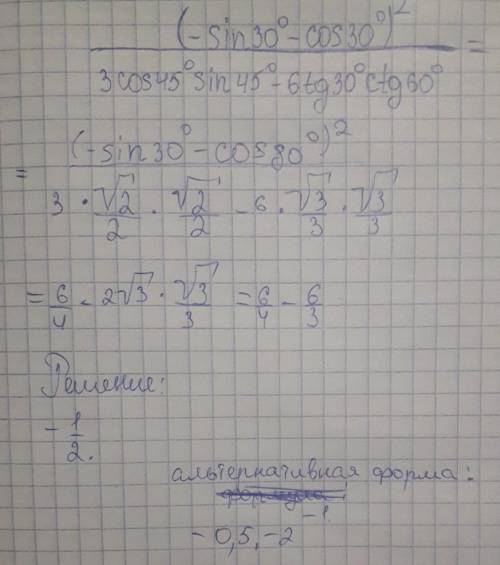 (-sin30°-cos30°)²
=
3cos45°sin45°-6tg30°ctg60°
(-sin30°-cos30°)²
=
3 · √2/2 · √2/2 - 6 · √3/3 · √3/3
= 6/4 - 2√3 · √3/3 = 6/4 - 6/3
Решение:
- 1/2.
альтернативная форма:
- 0,5, -2⁻¹